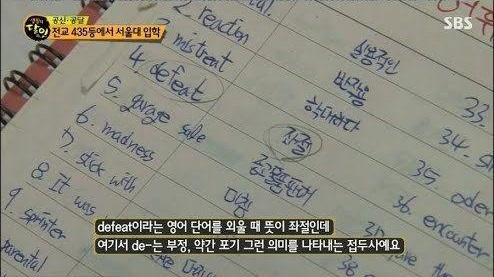 공신·공달
전교 435등에서 서울대 입학
SBS
2. reaction 실용적인 33.
3. mistreat 반작용 34.
4. defeat 학대하다 35. oder
5. garage sale 좌절 36. encounter
6. madness
7. stick with 미침
8. It was
9. sprinter
parental
defeat이라는 영어 단어를 외울 때 뜻이 좌절인데
여기서 de-는 부정, 약간 포기 그런 의미를 나타내는 접두사예요